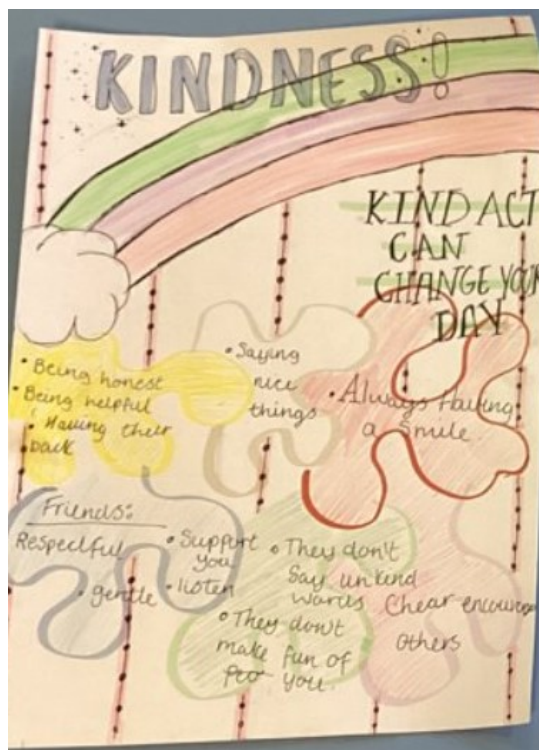 KINDNESS!
KIND ACT
CAN
CHANGE YOUR
DAY
• Being honest
• Being helpful
• Having their
back
• Saying
nice
things
• Always Having
a smile
Friends:
Respectful
• gentle
• Support
you
• listen
• They don't
Say unkind
wards
• They don't
make fun of
peo you.
Chear encourage
others